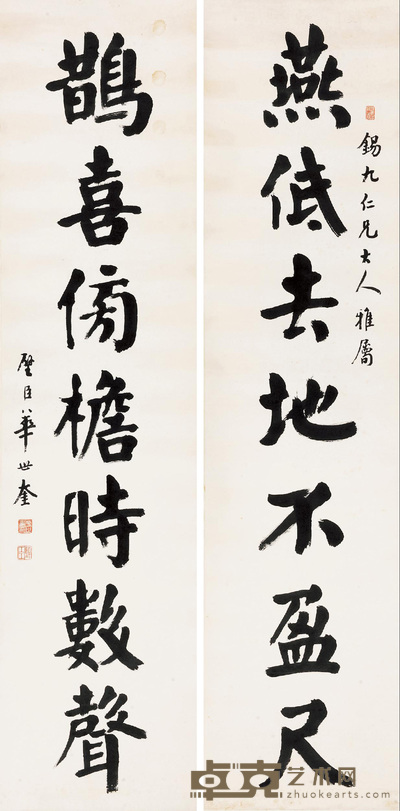 燕低去地不盈尺
錫九仁兄大人雅屬
鵲喜傍檐時數聲
璧臣華世奎
卓克艺术网
www.zhuokearts.com